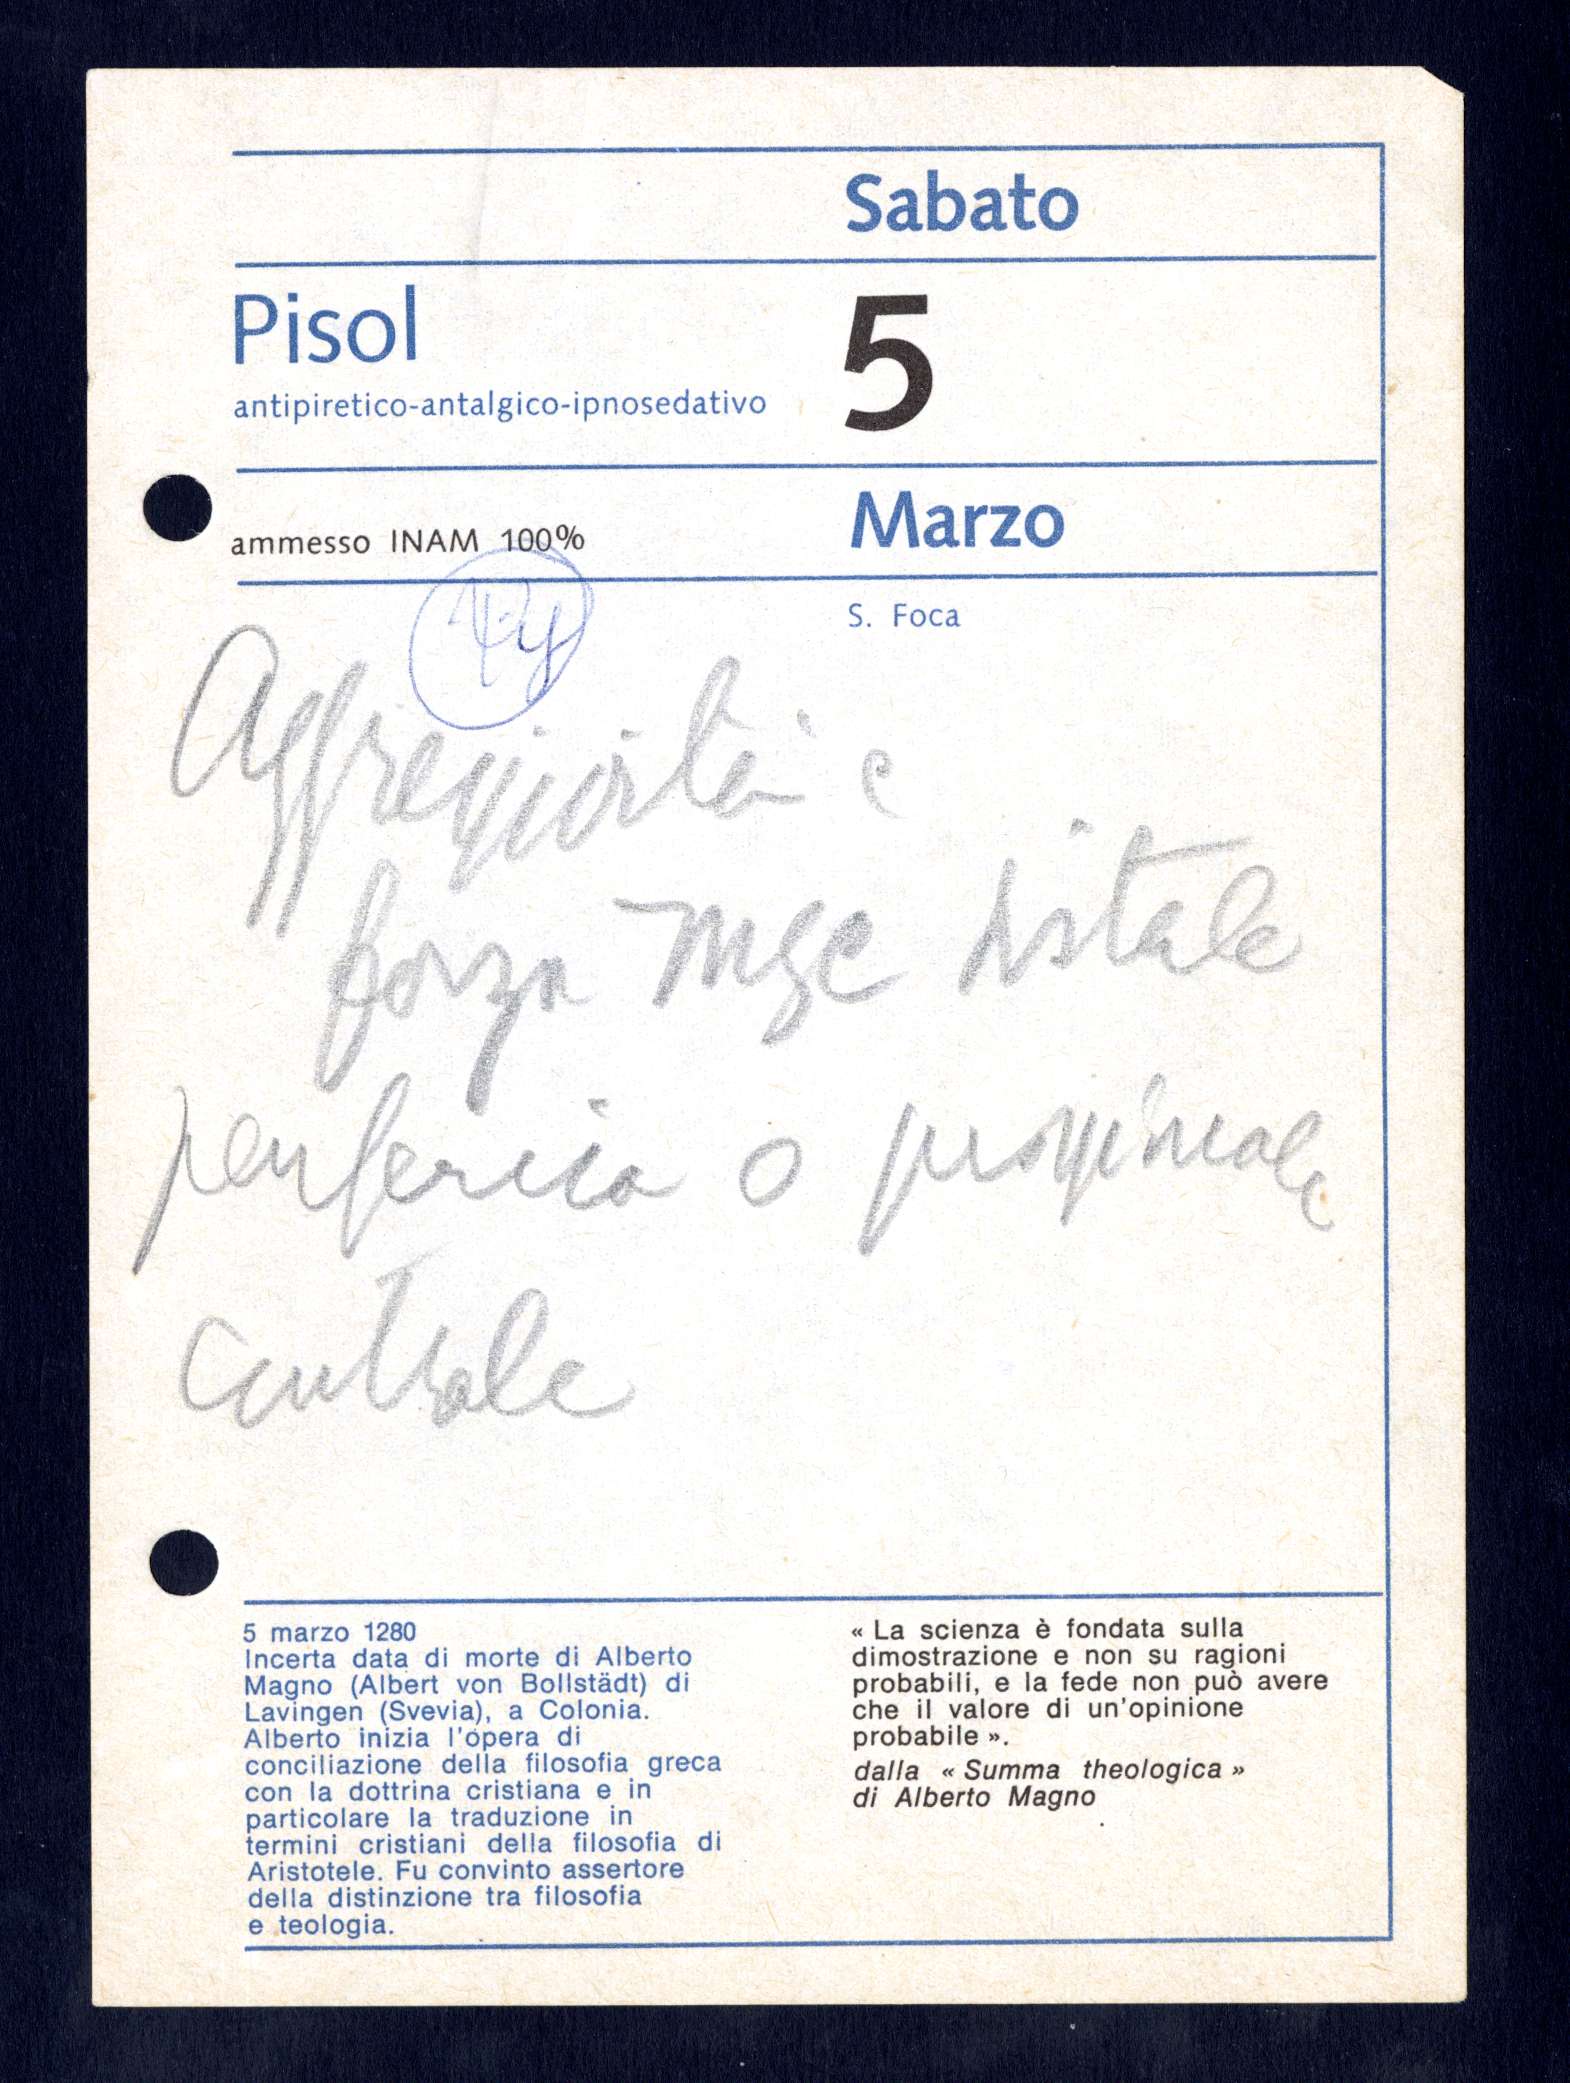 Sabato
Pisol
5
antipiretico-antalgico-ipnosedativo
ammesso INAM 100%
Marzo
S. Foca
e
forza distale
periferica o prossimale
centrale
5 marzo 1280
Incerta data di morte di Alberto
Magno (Albert von Bollstädt) di
Lavingen (Svevia), a Colonia.
Alberto inizia l'opera di
conciliazione della filosofia greca
con la dottrina cristiana e in
particolare la traduzione in
termini cristiani della filosofia di
Aristotele. Fu convinto assertore
della distinzione tra filosofia
e teologia.
« La scienza è fondata sulla
dimostrazione e non su ragioni
probabili, e la fede non può avere
che il valore di un'opinione
probabile ».
dalla « Summa theologica »
di Alberto Magno